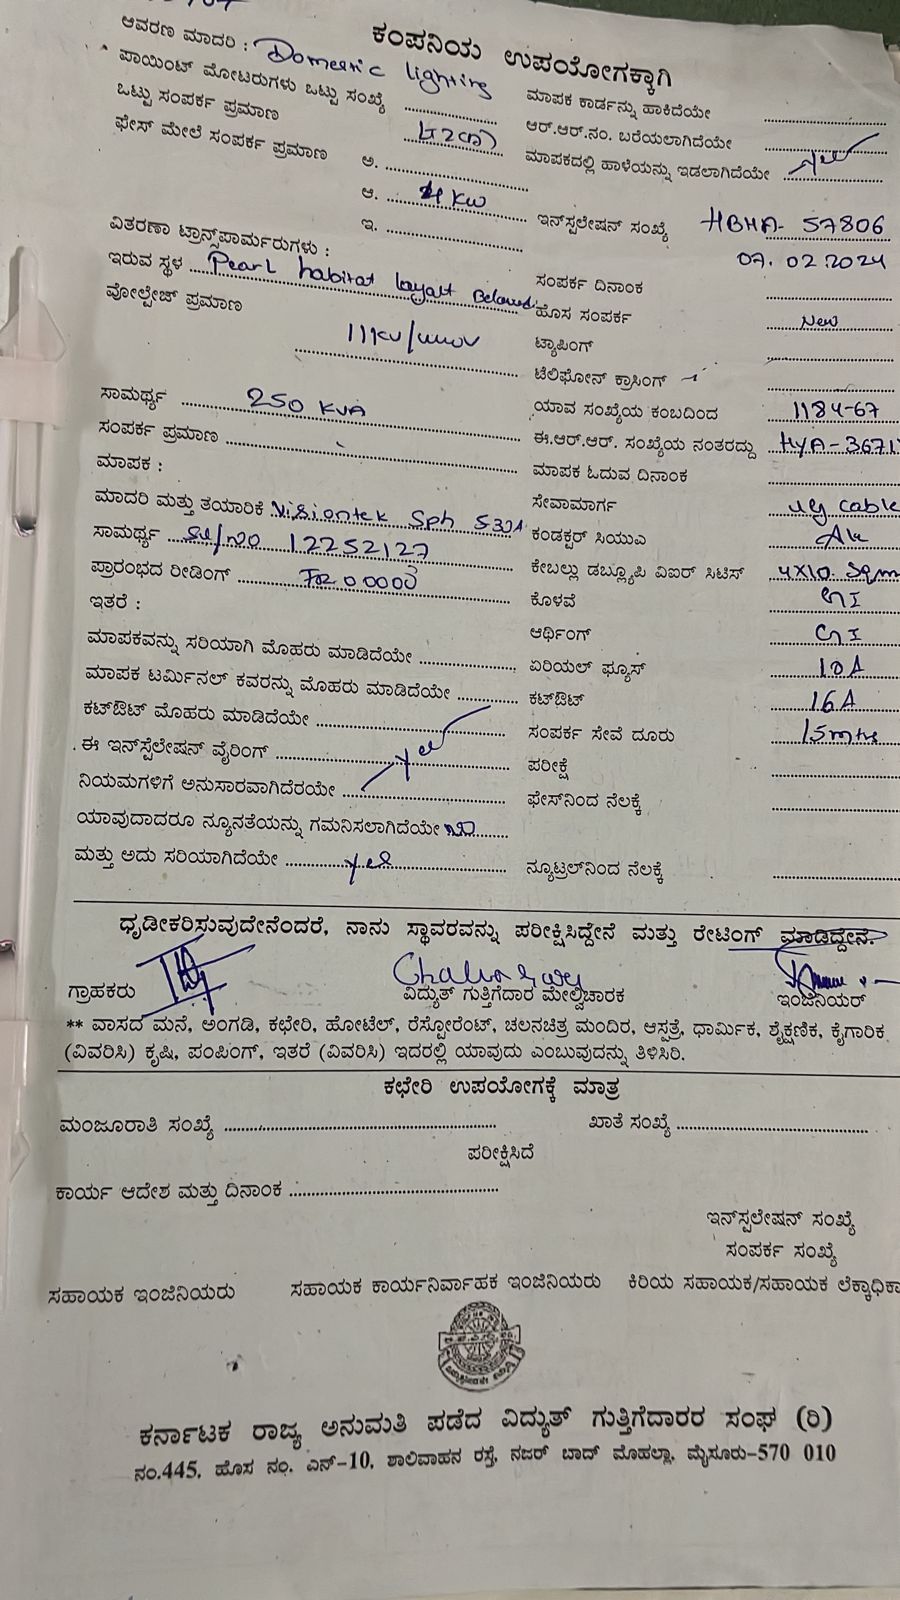 ಕಂಪನಿಯ ಉಪಯೋಗಕ್ಕಾಗಿ
ಆವರಣ ಮಾದರಿ : Domestic lighting
ಪಾಯಿಂಟ್ ಮೋಟರುಗಳು ಒಟ್ಟು ಸಂಖ್ಯೆ
ಒಟ್ಟು ಸಂಪರ್ಕ ಪ್ರಮಾಣ
ಫೇಸ್ ಮೇಲೆ ಸಂಪರ್ಕ ಪ್ರಮಾಣ ಅ.
ಆ. 4 KW
ಇ.
ವಿತರಣಾ ಟ್ರಾನ್ಸ್‌ಪಾರ್ಮರುಗಳು :
ಇರುವ ಸ್ಥಳ Pearl habitat layout
ವೋಲ್ಟೇಜ್ ಪ್ರಮಾಣ 11KV/
ಸಾಮರ್ಥ್ಯ 250 KVA
ಸಂಪರ್ಕ ಪ್ರಮಾಣ
ಮಾಪಕ :
ಮಾದರಿ ಮತ್ತು ತಯಾರಿಕೆ Visiontek Sph
ಸಾಮರ್ಥ್ಯ Sl/no 12252127
ಪ್ರಾರಂಭದ ರೀಡಿಂಗ್
ಇತರೆ :
ಮಾಪಕವನ್ನು ಸರಿಯಾಗಿ ಮೊಹರು ಮಾಡಿದೆಯೇ
ಮಾಪಕ ಟರ್ಮಿನಲ್ ಕವರನ್ನು ಮೊಹರು ಮಾಡಿದೆಯೇ
ಕಟ್‌ಔಟ್ ಮೊಹರು ಮಾಡಿದೆಯೇ
ಈ ಇನ್‌ಸ್ಟಲೇಷನ್ ವೈರಿಂಗ್ yes
ನಿಯಮಗಳಿಗೆ ಅನುಸಾರವಾಗಿದೆರಯೇ
ಯಾವುದಾದರೂ ನ್ಯೂನತೆಯನ್ನು ಗಮನಿಸಲಾಗಿದೆಯೇ no
ಮತ್ತು ಅದು ಸರಿಯಾಗಿದೆಯೇ yes
ಮಾಪಕ ಕಾರ್ಡನ್ನು ಹಾಕಿದೆಯೇ
ಆರ್.ಆರ್.ನಂ. ಬರೆಯಲಾಗಿದೆಯೇ
ಮಾಪಕದಲ್ಲಿ ಹಾಳೆಯನ್ನು ಇಡಲಾಗಿದೆಯೇ yes
ಇನ್‌ಸ್ಪಲೇಷನ್ ಸಂಖ್ಯೆ HBHA- 57806
07.02.2024
ಸಂಪರ್ಕ ದಿನಾಂಕ
ಹೊಸ ಸಂಪರ್ಕ New
ಟ್ಯಾಪಿಂಗ್
ಟೆಲಿಫೋನ್ ಕ್ರಾಸಿಂಗ್
ಯಾವ ಸಂಖ್ಯೆಯ ಕಂಬದಿಂದ 1184-67
ಈ.ಆರ್.ಆರ್. ಸಂಖ್ಯೆಯ ನಂತರದ್ದು HYA-3671
ಮಾಪಕ ಓದುವ ದಿನಾಂಕ
ಸೇವಾಮಾರ್ಗ ug cable
ಕಂಡಕ್ಟರ್ ಸಿಯುವಿ
ಕೇಬಲ್ಲು ಡಬ್ಲ್ಯೂಪಿ ವಿಐರ್ ಸಿಟಿಸ್ 4x10 Sqm
ಕೊಳವೆ GI
ಅರ್ಥಿಂಗ್ GI
ಏರಿಯಲ್ ಫ್ಯೂಸ್ 10A
ಕಟ್‌ಔಟ್ 16A
ಸಂಪರ್ಕ ಸೇವೆ ದೂರು 15mts
ಪರೀಕ್ಷೆ
ಫೇಸ್‌ನಿಂದ ನೆಲಕ್ಕೆ
ನ್ಯೂಟ್ರಲ್‌ನಿಂದ ನೆಲಕ್ಕೆ
ಧೃಡೀಕರಿಸುವುದೇನೆಂದರೆ, ನಾನು ಸ್ಥಾವರವನ್ನು ಪರೀಕ್ಷಿಸಿದ್ದೇನೆ ಮತ್ತು ರೇಟಿಂಗ್ ಮಾಡಿದ್ದೇನೆ.
ಗ್ರಾಹಕರು ವಿದ್ಯುತ್ ಗುತ್ತಿಗೆದಾರ ಮೇಲ್ವಿಚಾರಕ ಇಂಜಿನಿಯರ್
** ವಾಸದ ಮನೆ, ಅಂಗಡಿ, ಕಛೇರಿ, ಹೋಟೆಲ್, ರೆಸ್ಟೋರೆಂಟ್, ಚಲನಚಿತ್ರ ಮಂದಿರ, ಆಸ್ಪತ್ರೆ, ಧಾರ್ಮಿಕ, ಶೈಕ್ಷಣಿಕ, ಕೈಗಾರಿಕ
(ವಿವರಿಸಿ) ಕೃಷಿ, ಪಂಪಿಂಗ್, ಇತರೆ (ವಿವರಿಸಿ) ಇದರಲ್ಲಿ ಯಾವುದು ಎಂಬುವುದನ್ನು ತಿಳಿಸಿರಿ.
ಕಛೇರಿ ಉಪಯೋಗಕ್ಕೆ ಮಾತ್ರ
ಮಂಜೂರಾತಿ ಸಂಖ್ಯೆ ಖಾತೆ ಸಂಖ್ಯೆ
ಪರೀಕ್ಷಿಸಿದೆ
ಕಾರ್ಯ ಆದೇಶ ಮತ್ತು ದಿನಾಂಕ
ಇನ್‌ಸ್ಪಲೇಷನ್ ಸಂಖ್ಯೆ
ಸಂಪರ್ಕ ಸಂಖ್ಯೆ
ಸಹಾಯಕ ಇಂಜಿನಿಯರು ಸಹಾಯಕ ಕಾರ್ಯನಿರ್ವಾಹಕ ಇಂಜಿನಿಯರು ಕಿರಿಯ ಸಹಾಯಕ/ಸಹಾಯಕ ಲೆಕ್ಕಾಧಿಕಾ
ಕರ್ನಾಟಕ ರಾಜ್ಯ ಅನುಮತಿ ಪಡೆದ ವಿದ್ಯುತ್ ಗುತ್ತಿಗೆದಾರರ ಸಂಘ (ರಿ)
ನಂ.445, ಹೊಸ ನಂ. ಎನ್-10, ಶಾಲಿವಾಹನ ರಸ್ತೆ, ನಜರ್ ಬಾದ್ ಮೊಹಲ್ಲಾ, ಮೈಸೂರು-570 010